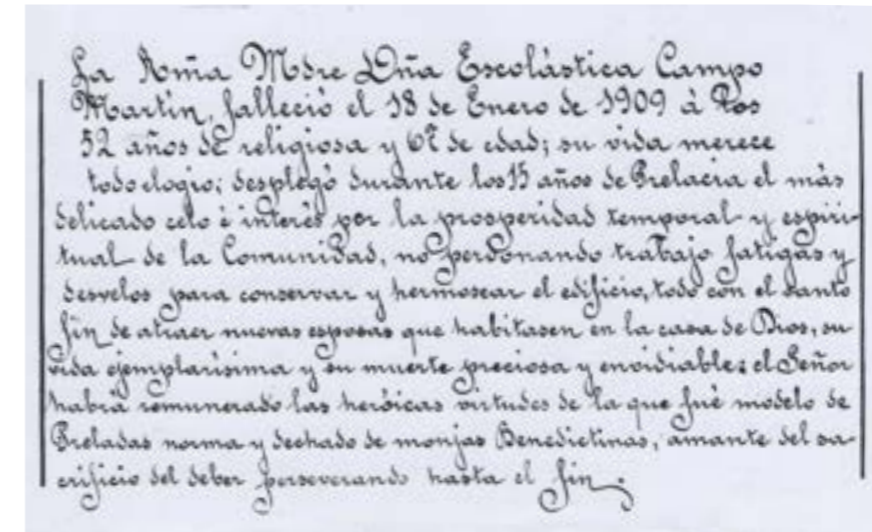 La Rmã Mdre Dña Escolástica Campo
Martín, falleció el 18 de Enero de 1909 á los
52 años de religiosa y de edad; su vida merece
todo elogio; desplegó durante los 15 años de Prelacia el más
delicado celo é interés por la prosperidad temporal y espiri-
tual de la Comunidad, no perdonando trabajo fatigas y
desvelos para conservar y hermosear el edificio, todo con el santo
fin de atraer nuevas esposas que habitasen en la casa de Dios, su
vida ejemplarísima y su muerte preciosa y envidiable; el Señor
habrá remunerado las heróicas virtudes de la que fué modelo de
Preladas norma y dechado de monjas Benedictinas, amante del sa-
crificio del deber perseverando hasta el fin.